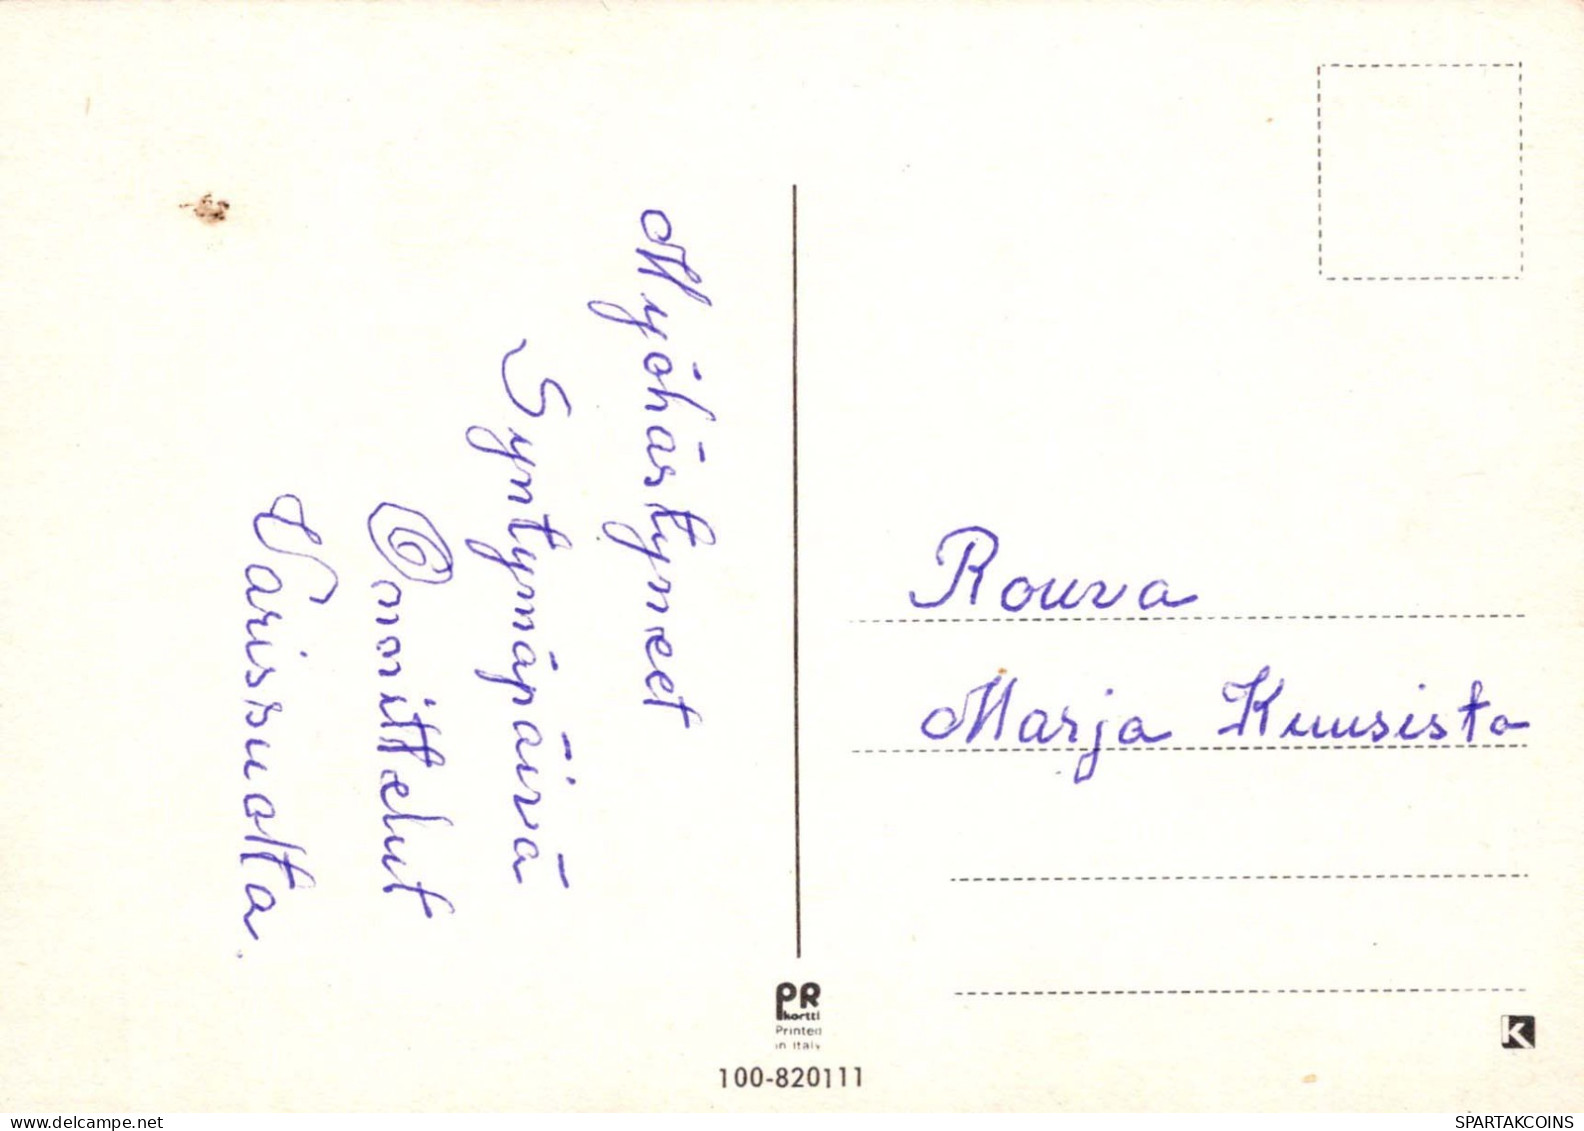 Myöhästyneet
Syntymäpäivä
Onnittelut
Varissuolta.
Rouva
Marja Kuusisto
PR
kortti
Printed
in Italy
100-820111
K
SPARTAKCOINS